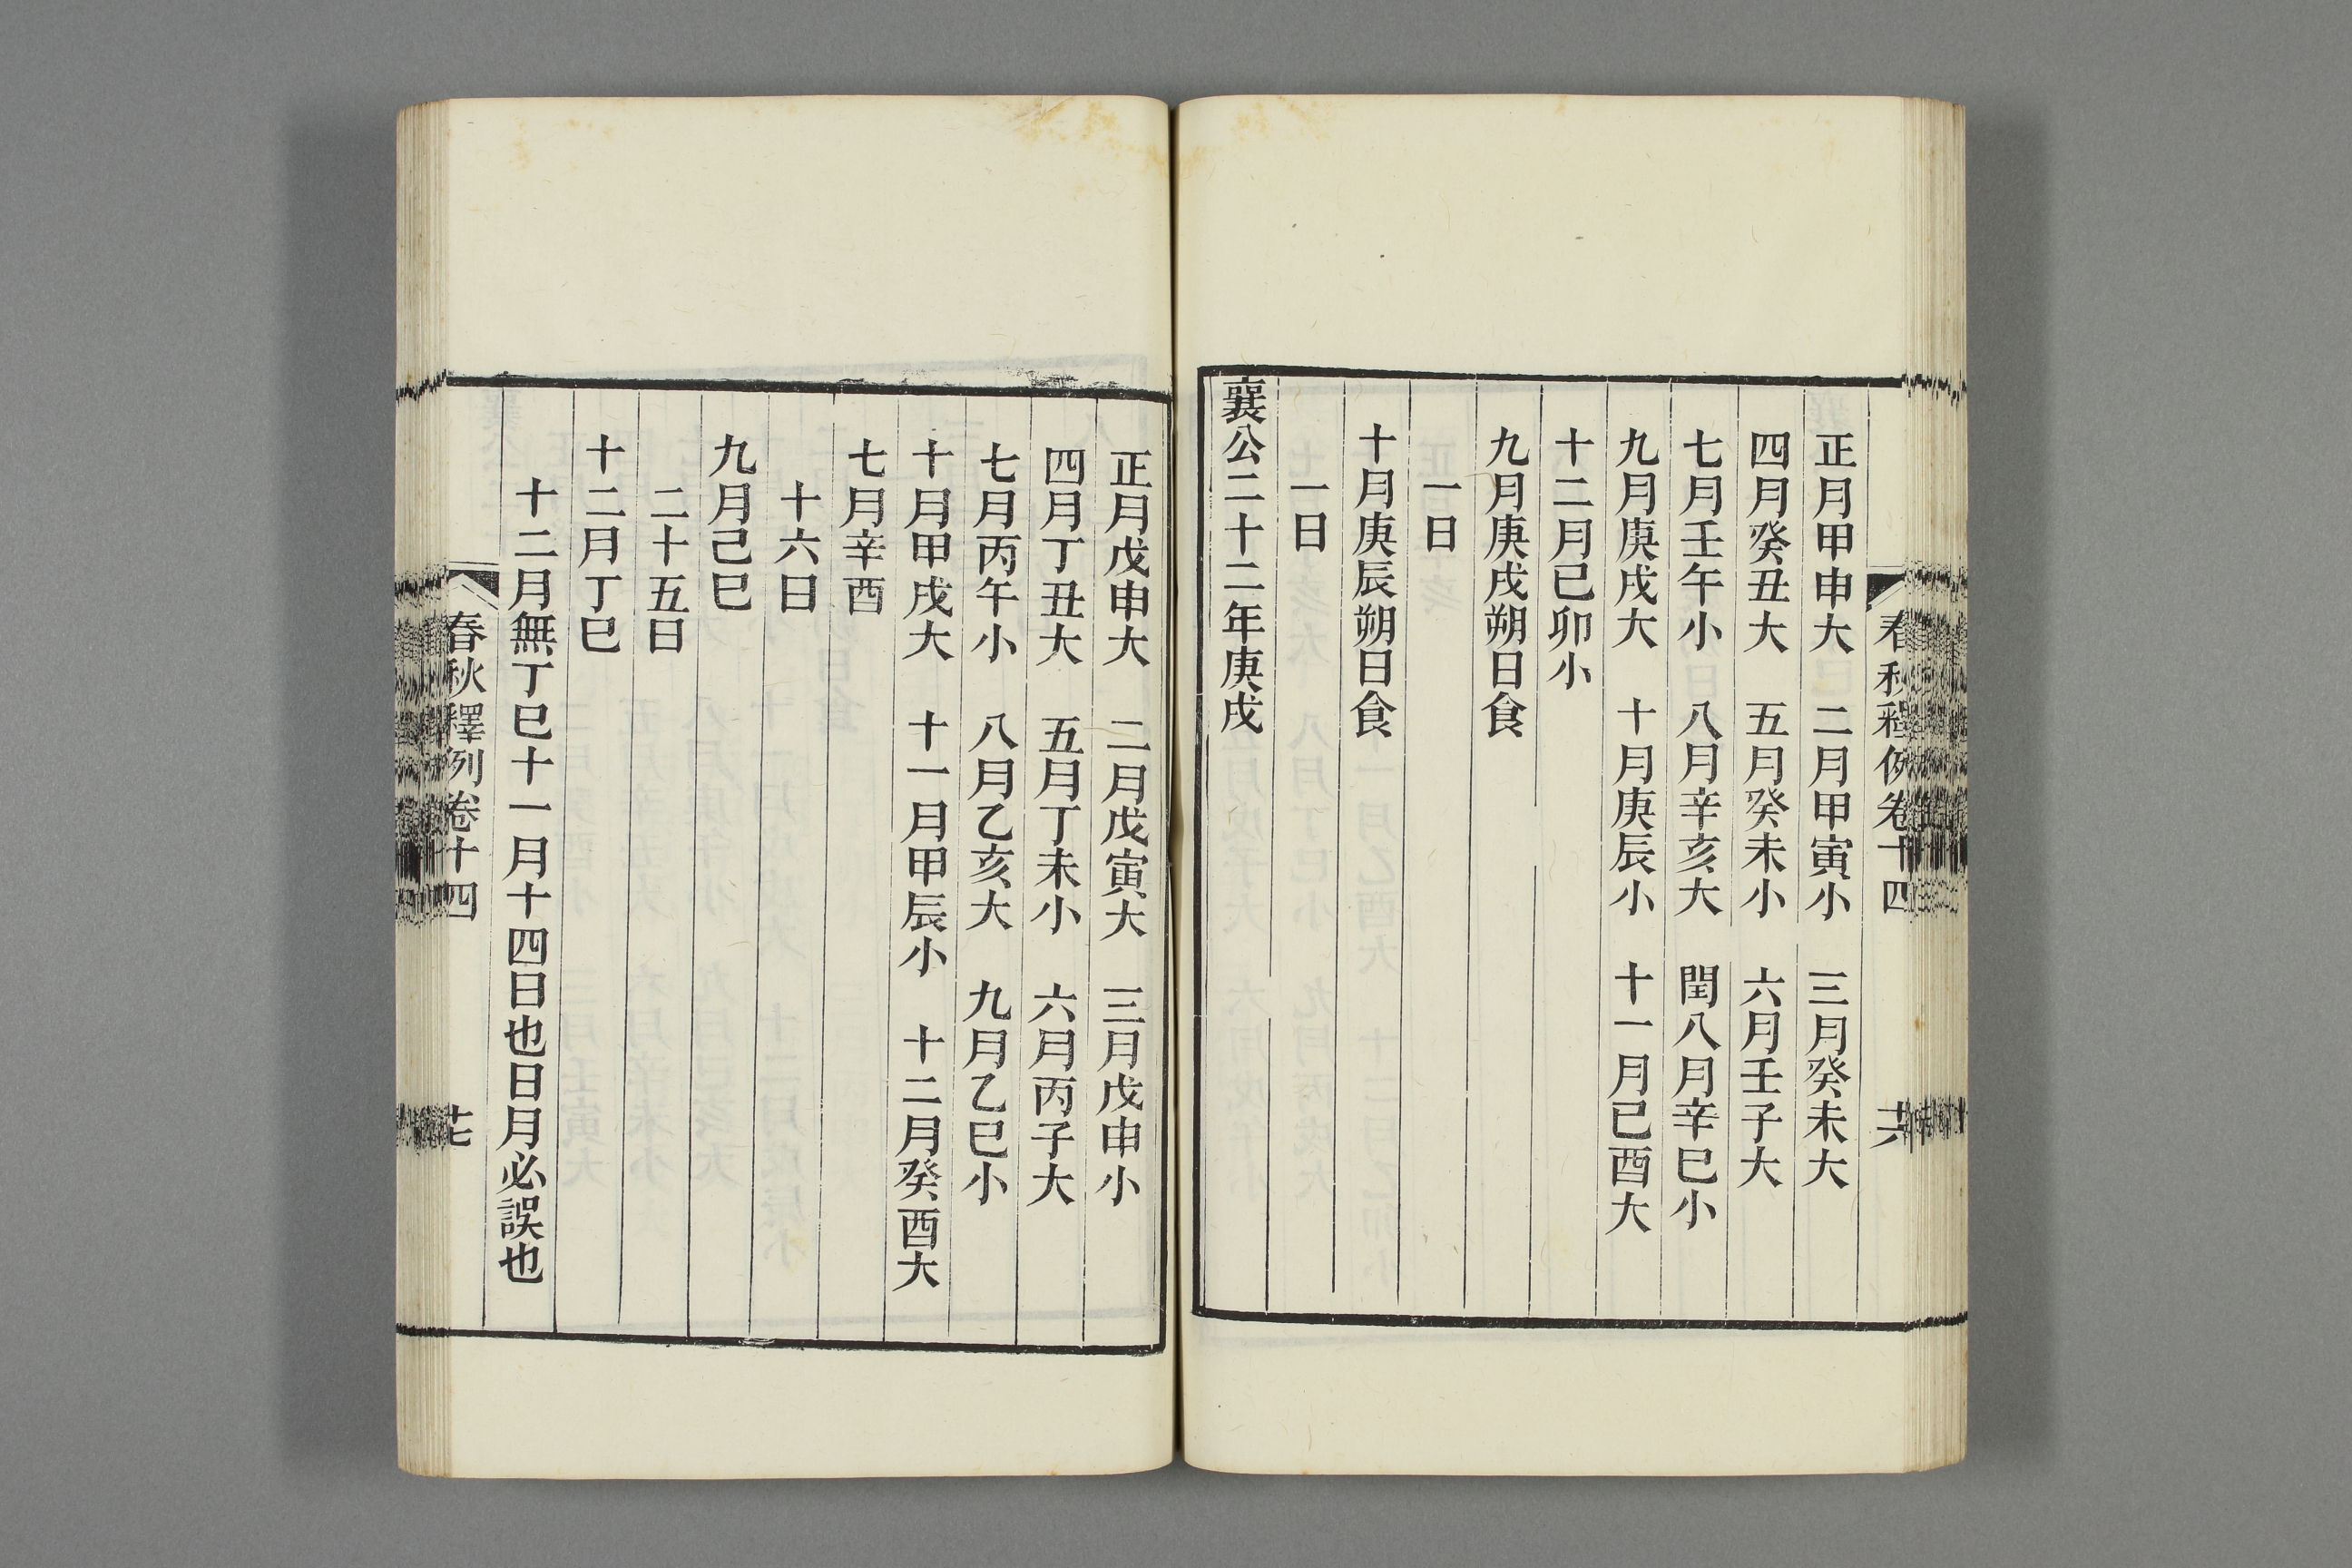 春秋釋例卷十四 廿六
正月甲申大 二月甲寅小 三月癸未大
四月癸丑大 五月癸未小 六月壬子大
七月壬午小 八月辛亥大 閏八月辛巳小
九月庚戌大 十月庚辰小 十一月己酉大
十二月己卯小
九月庚戌朔日食
一日
十月庚辰朔日食
一日
襄公二十二年庚戌
正月戊申大 二月戊寅大 三月戊申小
四月丁丑大 五月丁未小 六月丙子大
七月丙午小 八月乙亥大 九月乙巳小
十月甲戌大 十一月甲辰小 十二月癸酉大
七月辛酉
十六日
九月己巳
二十五日
十二月丁巳
十二月無丁巳十一月十四日也日月必誤也
春秋釋例卷十四 廿七